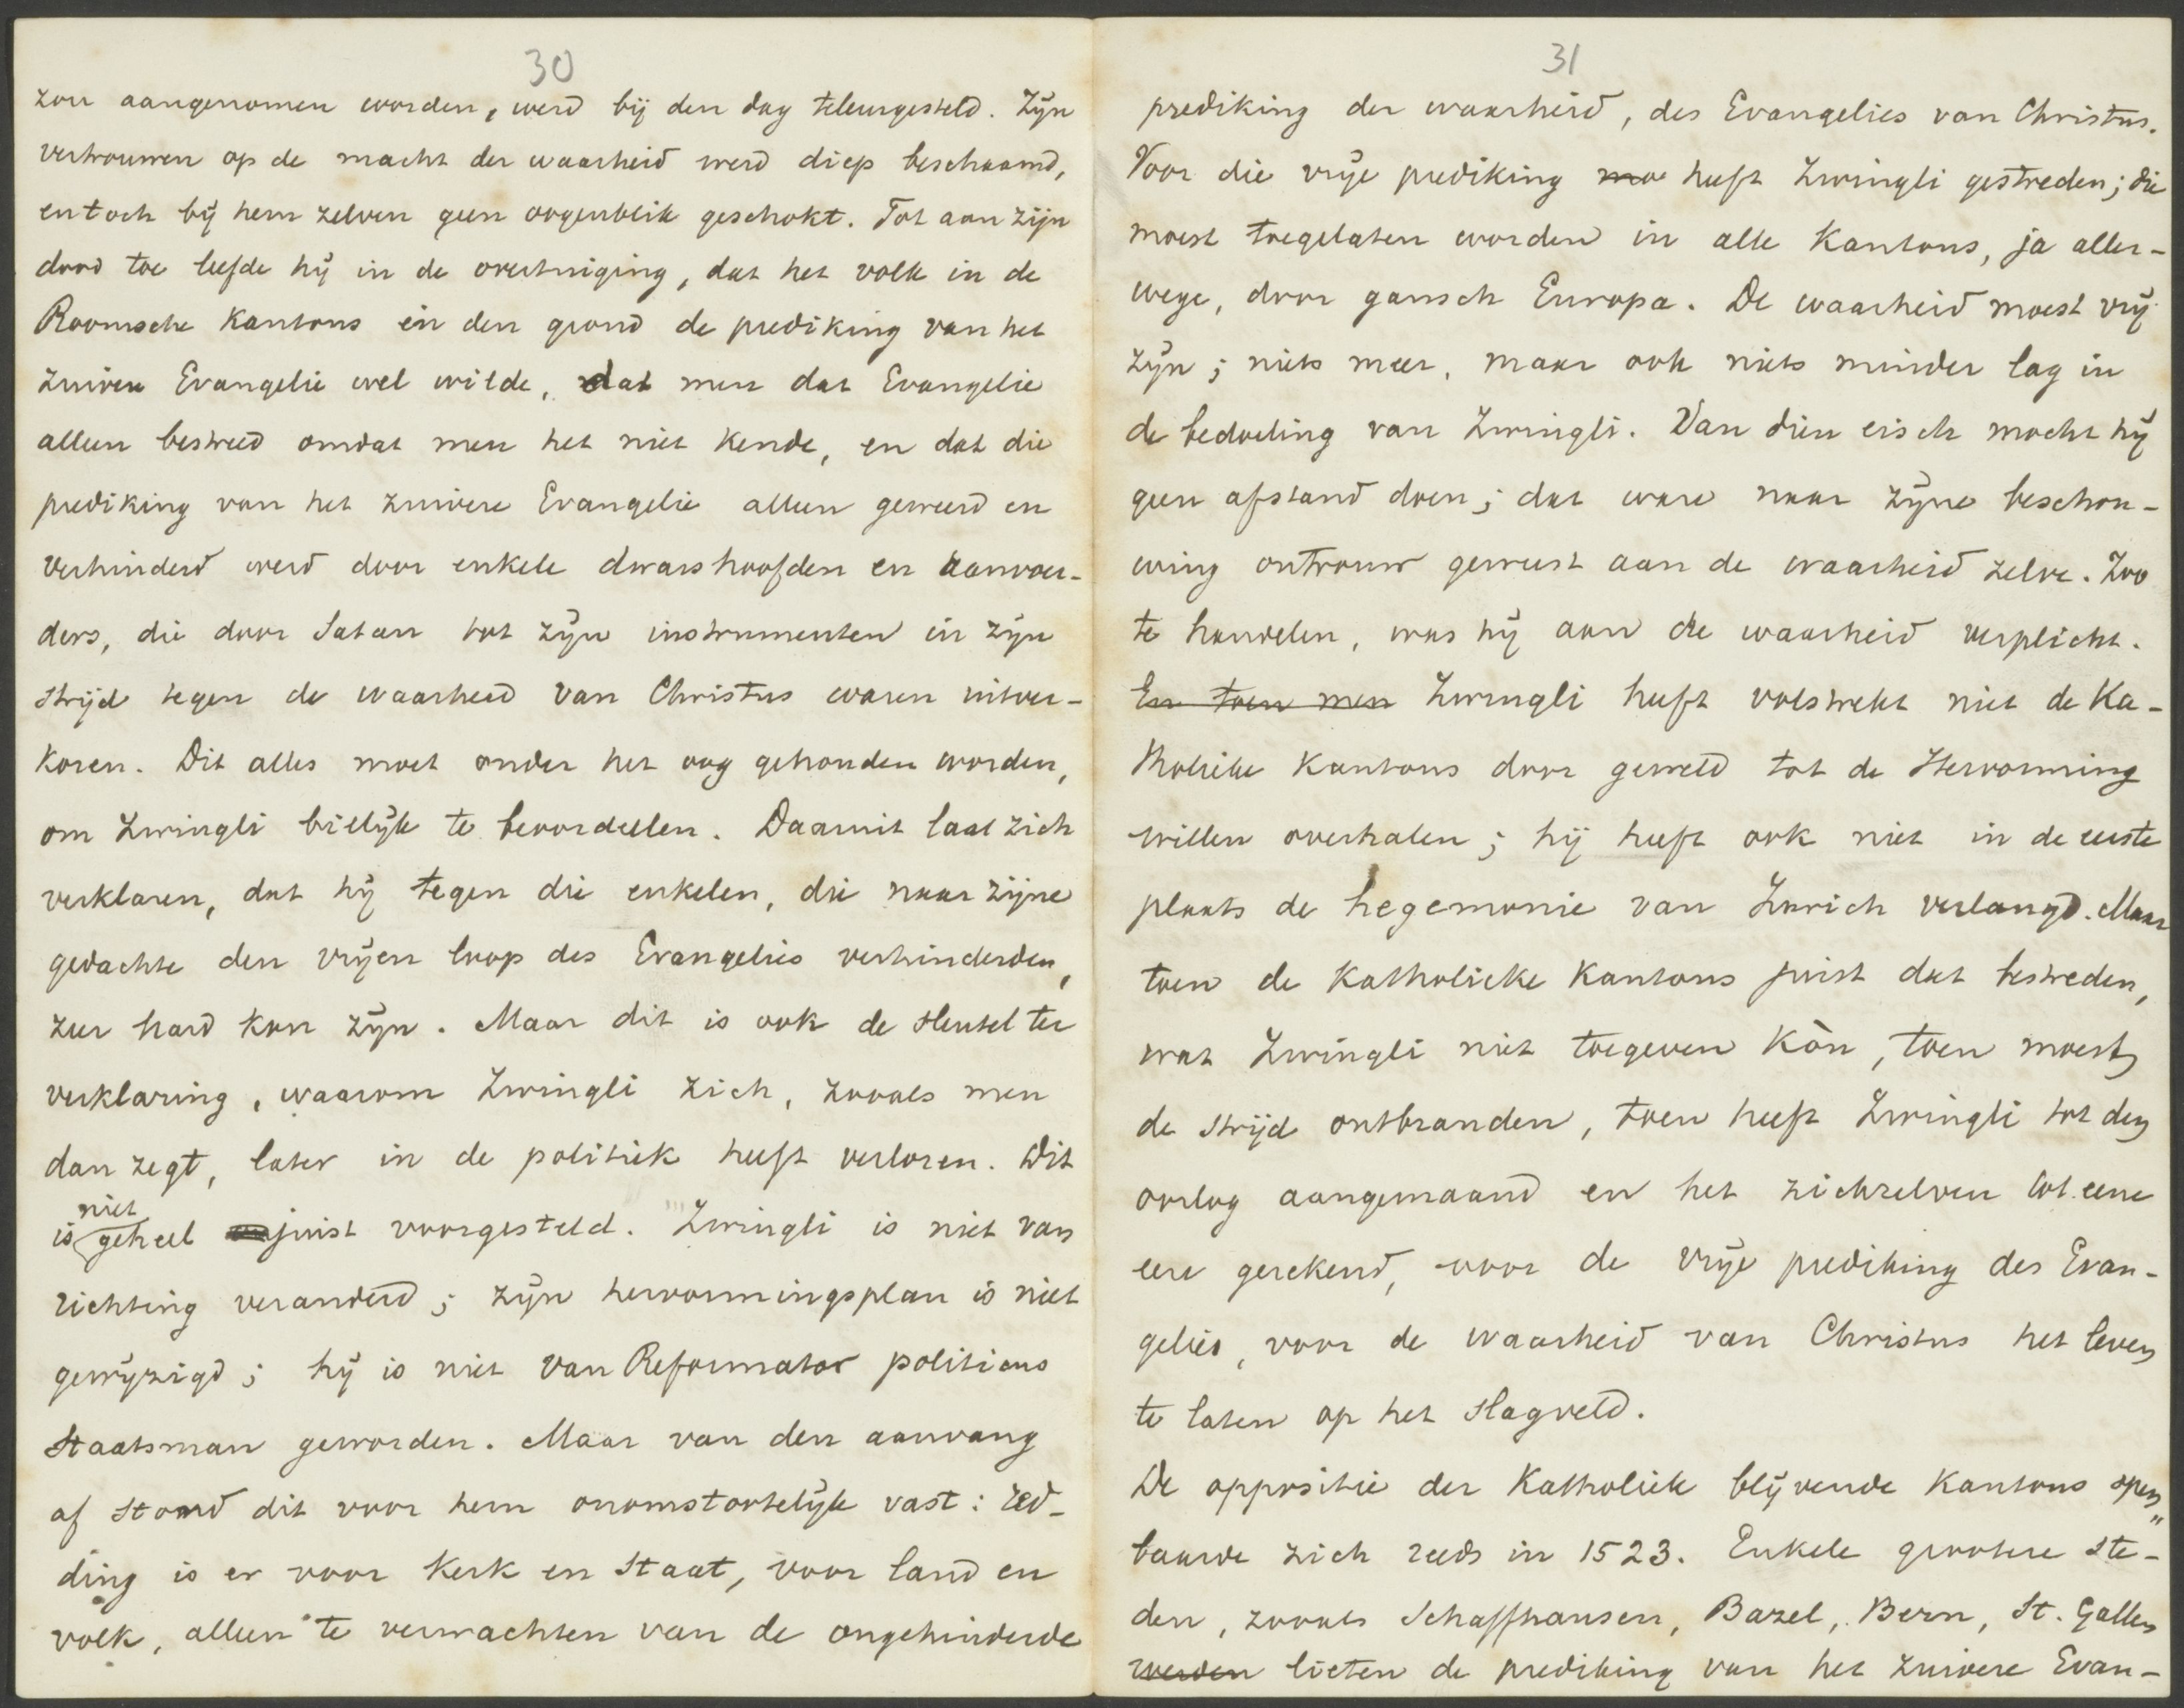 30
zou aangenomen worden, werd bij den dag teleurgesteld. Zijn
vertrouwen op de macht der waarheid werd diep beschaamd,
en toch bij hem zelven geen oogenblik geschokt. Tot aan zijn
dood toe leefde hij in de overtuiging, dat het volk in de
Roomsche Kantons in den grond de prediking van het
zuivere Evangelie wel wilde, dat men dat Evangelie
alleen bestreed omdat men het niet kende, en dat die
prediking van het zuivere Evangelie alleen geweerd en
verhinderd werd door enkele dwarshoofden en aanvoer-
ders, die door Satan tot zijn instrumenten in zijn
strijd tegen de waarheid van Christus waren uitver-
koren. Dit alles moet onder het oog gehouden worden,
om Zwingli billijk te beoordeelen. Daaruit laat zich
verklaren, dat hij tegen die enkelen, die naar zijne
gedachte den vrijen loop des Evangelies verhinderden,
zeer hard kon zijn. Maar dit is ook de sleutel ter
verklaring, waarom Zwingli zich, zooals men
dan zegt, later in de politiek heeft verloren. Dit
is niet geheel juist voorgesteld. Zwingli is niet van
richting veranderd; zijn hervormingsplan is niet
gewijzigd; hij is niet van Reformator politicus
Staatsman geworden. Maar van den aanvang
af stond dit voor hem onomstootelijk vast: red-
ding is er voor Kerk en Staat, voor land en
volk, alleen te verwachten van de ongehinderde
31
prediking der waarheid, des Evangelies van Christus.
Voor die vrije prediking heeft Zwingli gestreden; die
moest toegelaten worden in alle Kantons, ja aller-
wege, door gansch Europa. De waarheid moest vrij
zijn; niets meer, maar ook niets minder lag in
de bedoeling van Zwingli. Van dien eisch mocht hij
geen afstand doen; dat ware naar zijne beschou-
wing ontrouw geweest aan de waarheid zelve. Zoo
te handelen, was hij aan de waarheid verplicht.
En toen men Zwingli heeft volstrekt niet de Ka-
tholieke Kantons door geweld tot de Hervorming
willen overhalen; hij heeft ook niet in de eerste
plaats de hegemonie van Zurich verlangd. Maar
toen de Katholieke Kantons juist dat bestreden,
wat Zwingli niet toegeven kòn, toen moest
de strijd ontbranden, toen heeft Zwingli tot den
oorlog aangemaand en het zichzelven tot eene
eere gerekend, voor de vrije prediking des Evan-
gelies, voor de waarheid van Christus het leven
te laten op het slagveld.
De oppositie der Katholiek blijvende Kantons open
baarde zich reeds in 1523. Enkele grootere ste-
den, zooals Schaffhausen, Bazel, Bern, St. Gallen
werden lieten de prediking van het zuivere Evan-